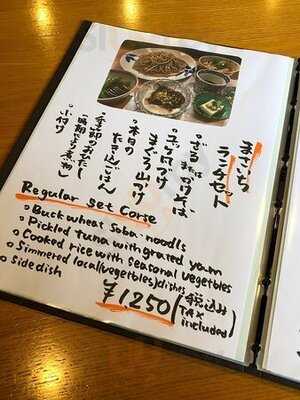 まさいち
ランチセット
・ざる または かけそば
・ユッケ風づけ
まぐろ山かけ
・本日の
たき込ごはん
・季節のおひたし
・小付け
Regular set Corse
○ Buckwheat Soba-noodls
○ Pickled tuna with grated yam
○ Cooked rice with seasonal vegetbles
○ Simmered local(vegetbles)dishes
○ Side dish
¥1250 (税込み
TAX
included)